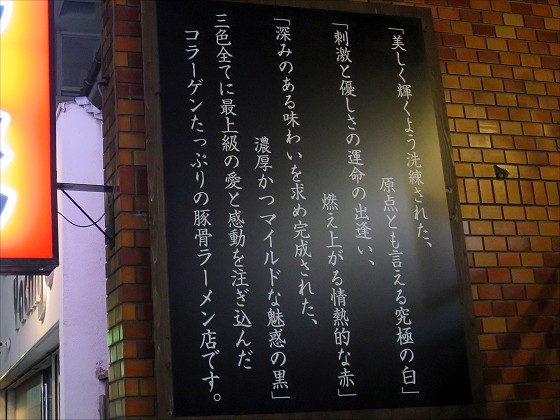 「美しく輝くよう洗練された、
原点とも言える究極の白」
「刺激と優しさの運命の出逢い、
燃え上がる情熱的な赤」
「深みのある味わいを求め完成された、
濃厚かつマイルドな魅惑の黒」
三色全てに最上級の愛と感動を注ぎ込んだ
コラーゲンたっぷりの豚骨ラーメン店です。